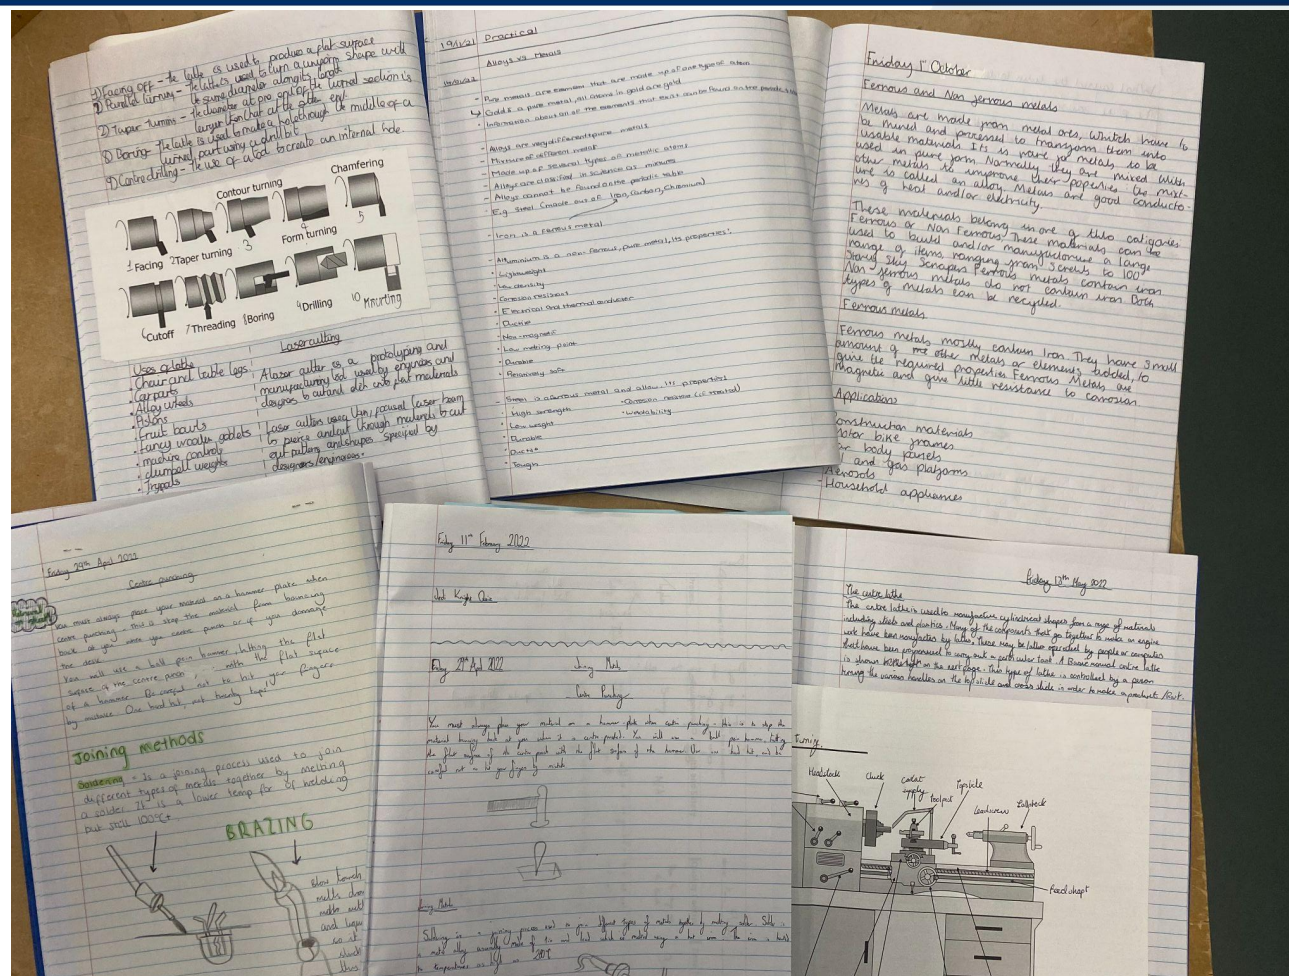 1) Facing off - the lathe is used to produce a flat surface
2) Parallel turning - the lathe is used to turn a uniform shape with
the same diameter along its length
2) Taper turning - the diameter at one end of the turned section is
larger than that at the other end
8) Boring - the lathe is used to make a hole through the middle of a
turned part using a drill bit
9) Centre drilling - the use of a tool to create an internal hole.
Chamfering
Contour turning
5
4
3
1 Facing
2 Taper turning
Form turning
6 Cutoff
7 Threading
8 Boring
9 Drilling
10 Knurling
Uses of lathe
• Chair and table legs
• Car parts
• Alloy wheels
• Pistons
• Fruit bowls
• Fancy wooden goblets
• machine controls
• dumbell weights
Laser cutting
A laser cutter is a prototyping and
manufacturing tool used by engineers and
designers to cut and etch into flat materials
Laser cutters use a thin, focused laser beam
to pierce and cut through materials to cut
out patterns and shapes specified by
designers/engineers.
Practical
Alloys vs Metals
- Pure metals are elements that are made up of one type of atom
Gold is a pure metal, all atoms in gold are gold
- Information about all of the elements that exist can be found on the periodic
- Alloys are very different to pure metals
- Mixture of different metal
- Made up of several types of metallic atoms
- Alloys are classified in science as mixtures
- Alloys cannot be found on the periodic table
- E.g. Steel (made out of Iron, Carbon, Chromium)
- Iron is a ferrous metal
- Alluminium is a non-ferrous, pure metal, Its properties:
- Lightweight
- Low density
- Corrosion resistant
- Electrical and thermal conductor
- Ductile
- Non-magnetic
- Low melting point
- Durable
- Relatively soft
- Steel a ferrous metal and alloy. Its properties
- High strength
- Corrosion resistant (if treated)
- Low weight
- Weldability
- Durable
- Ductile
- Tough
Friday 1st October
Ferrous and Non ferrous metals
Metals are made from metal ores, which have to
be mined and processed to transform them into
usable materials It is rare for metals to be
used in pure form Normally they are mixed with
other metals to improve their poperties the mixt-
ure is called an alloy. Metals are good conducto-
res of heat and/or electricity.
These materials belong in one of two catigories
Ferrous or Non Ferrous. These materials can be
used to build and/or manufactorure a large
range of items, ranging from screws to 100
Story Sky Scrapers Ferrous metals contain iron
Non-ferrous metals do not contain iron Both
types of metals can be recycled.
Ferrous metals
Ferrous metals mostly contain Iron They have small
amount of other metals or elements added, to
give the required properties Ferrous Metals are
magnetic and give little resistance to corrosion.
Applications
onstruction materials
otor bike frames
body panels
and gas platforms
Aerosols
- Household appliances
Friday 29th April 2022
Centre punching
You must always place your material on a hammer plate when
centre punching - this is stop the material from bouncing
back at you when you centre punch or if you damage
the desk
You will use a ball pein hammer, hitting the flat
square of the centre punch with the flat surface
of a hammer. Be careful not to hit your fingers
by mistake. One hard hit, not
Joining methods
Soldering - Is a joining process used to join
different types of metals together by melting
a solder. It is a lower temp for of welding
but still 100°C+
BRAZING
Blow torch
melts
metal
and
so it
Friday 11th February 2022
Friday 29th April 2022
Joining Metals
Centre Punching
You must always place your material on a hammer plate when centre punching - this is to stop the
material bouncing back at you
You will use a ball pein hammer, hitting
the flat surface of the centre punch with the flat surface of the hammer. Use one hard hit, and be
careful not to hit your fingers by mistake
Joining Metals
Soldering is a joining process used to join different types of metals together by melting solder. Solder is
a metal alloy usually made of tin and lead which is melted using a hot iron. The iron is heated
to temperatures as high as
Friday 13th May 2022
The centre lathe
The centre lathe is used to manufacture cylindrical shapes from a range of materials
including steels and plastics. Many of the components that go together to make an engine
work have been manufactur by lathes. These may be lathes operated by people or computers
that have been programmed to carry out a particular task. A Basic manual centre lathe
is shown on the next page. This type of lathe is controlled by a person
turning the various handles on the top slide and cross slide in order to make a product/part.
Turning.
Headstock
Chuck
coolant
supply
Toolpost
Topslide
Leadscrew
Tailstock
Feedshaft